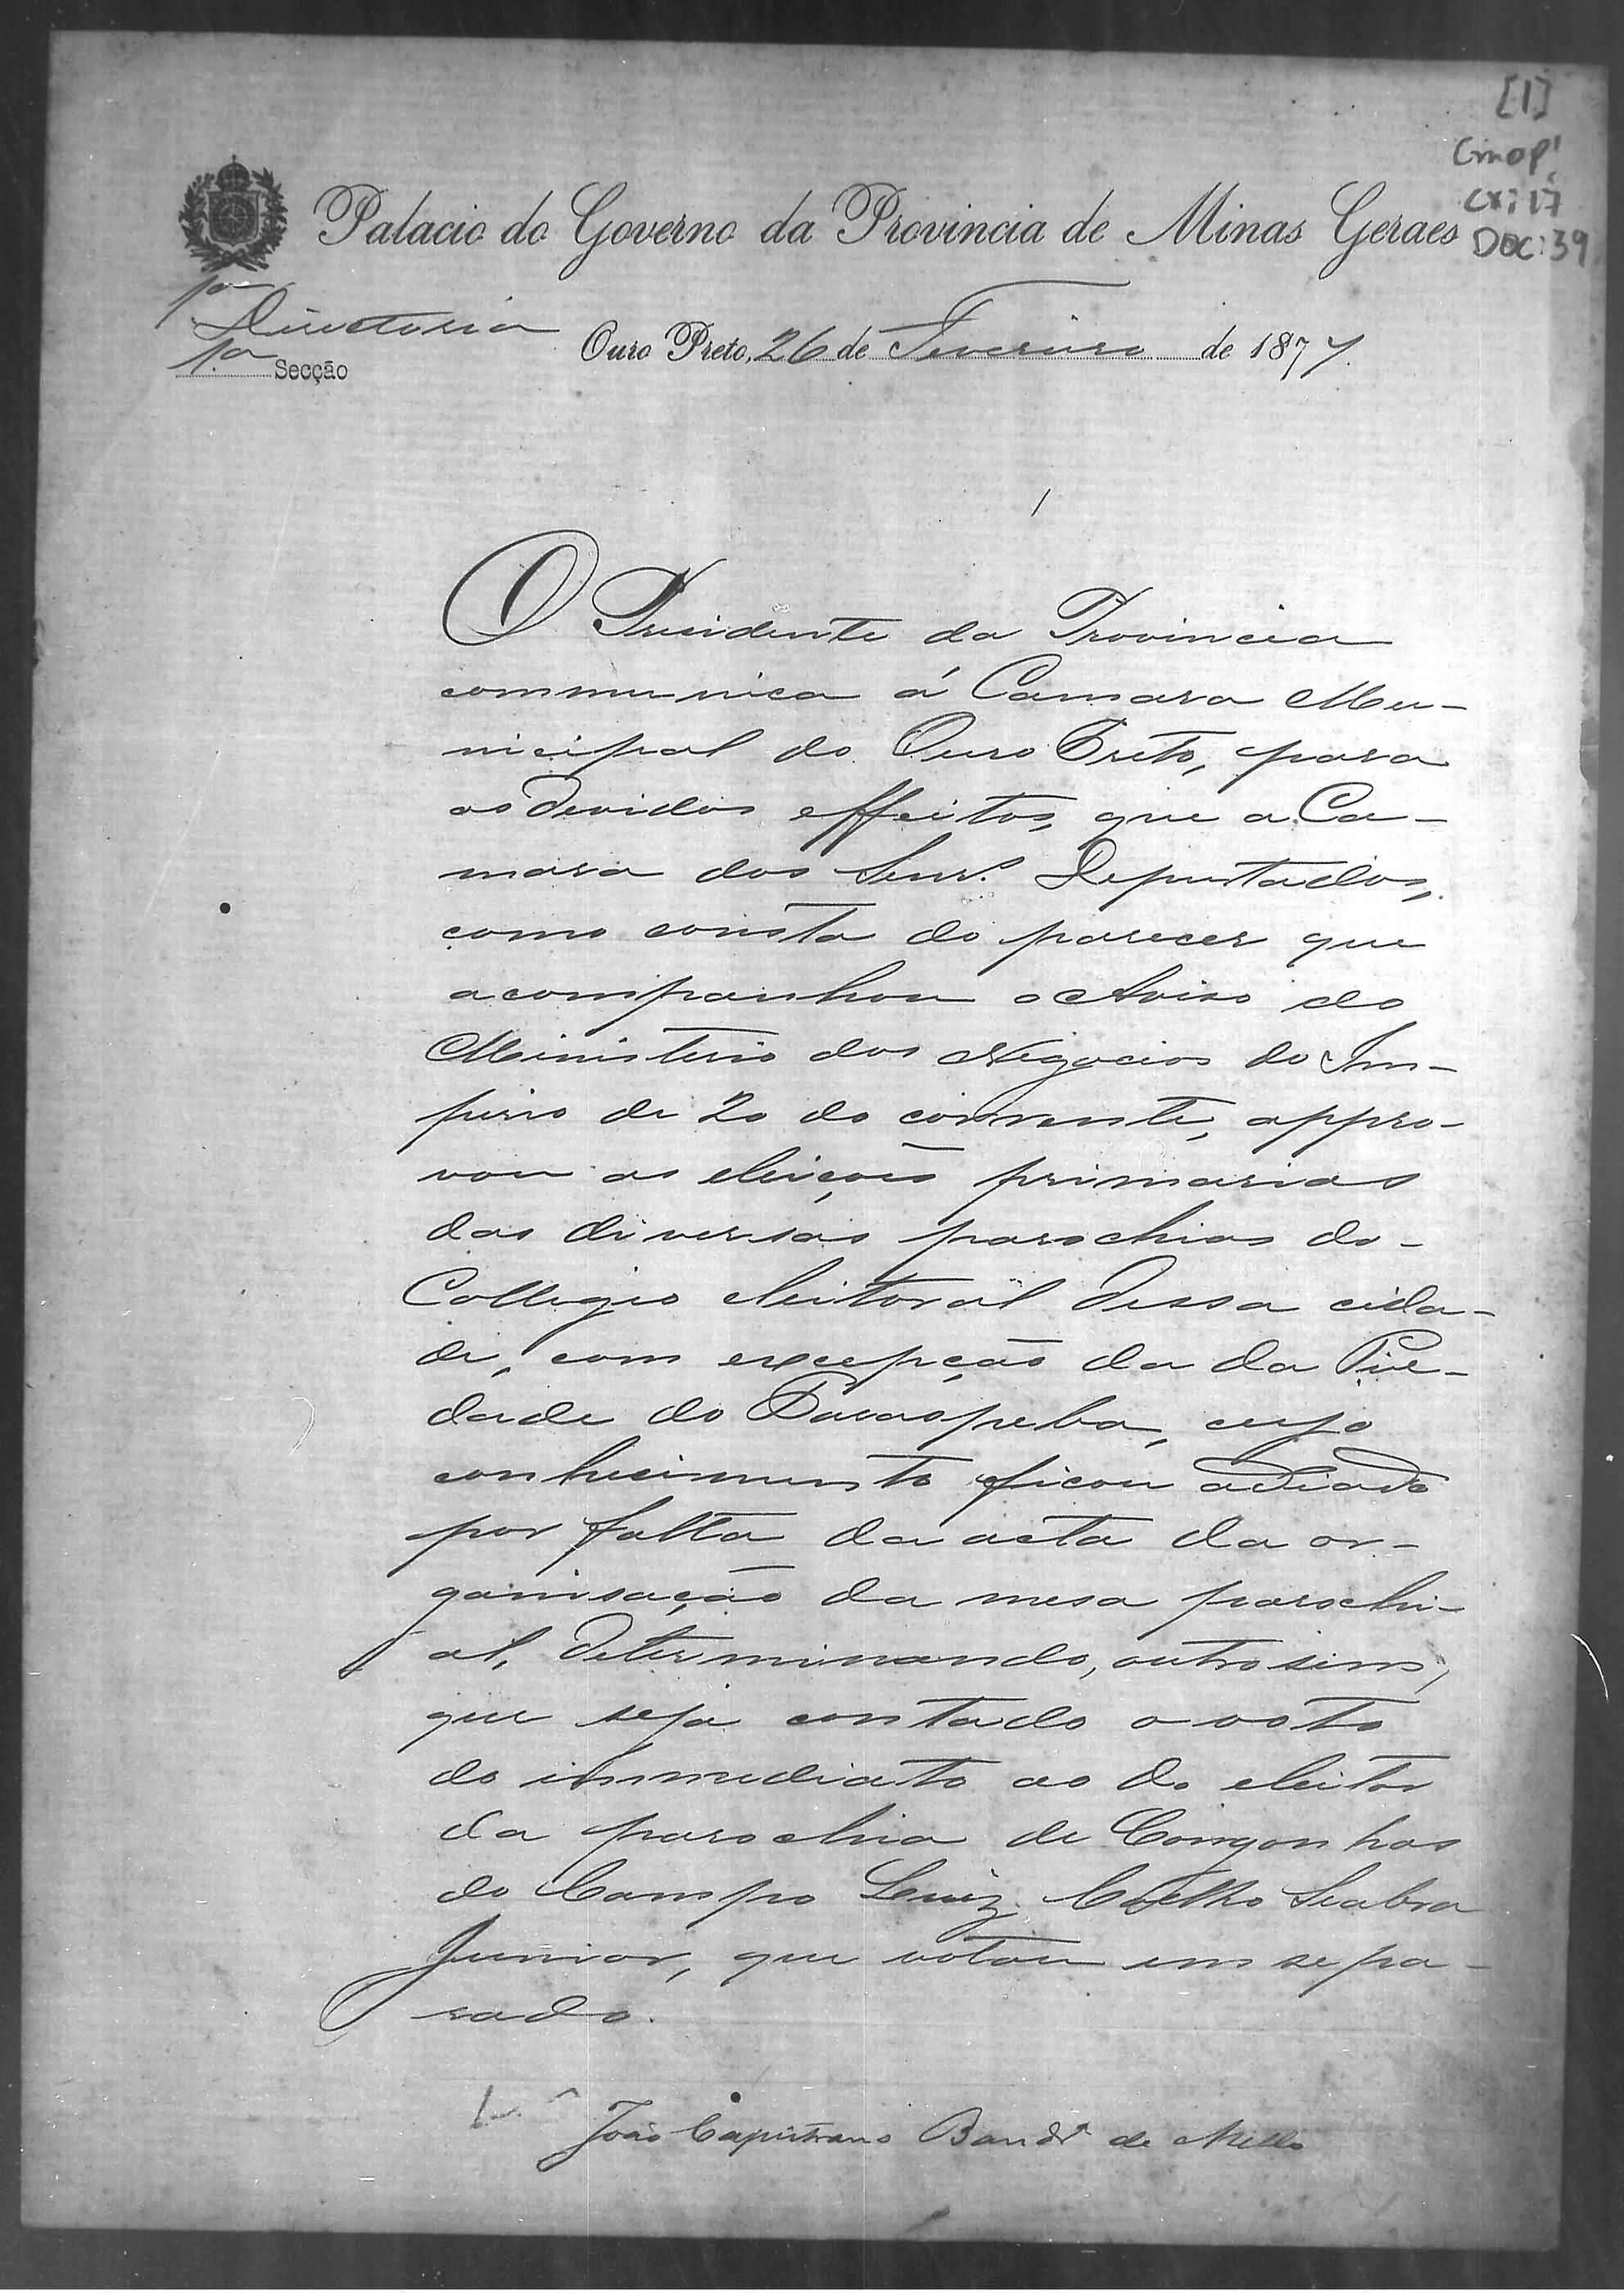 [1]
CMOP
CX: 17
DOC: 39
Palacio do Governo da Provincia de Minas Geraes
1ª Directoria
1ª Secção
Ouro Preto, 26 de Fevereiro de 1877.
O Presidente da Provincia
communica á Camara Mu-
nicipal do Ouro Preto, para
os devidos effeitos, que a Ca-
mara dos Senr.s Deputados,
como consta do parecer que
acompanhou o Aviso do
Ministerio dos Negocios do Im-
perio de 20 do corrente, appro-
vou as eleições primarias
das diversas parochias do
Collegio eleitoral dessa cida-
de, com excepção da da Pie-
dade do Paraopeba, cujo
conhecimento ficou adiado
por falta da acta da or-
ganisação da mesa parochi-
al, determinando, outrosim,
que seja contado o voto
do immediato ao do eleitor
da parochia de Congonhas
do Campo Luiz Coelho Seabra
Junior, que votou em sepa-
rado.
João Capistrano Band.ra de Mello